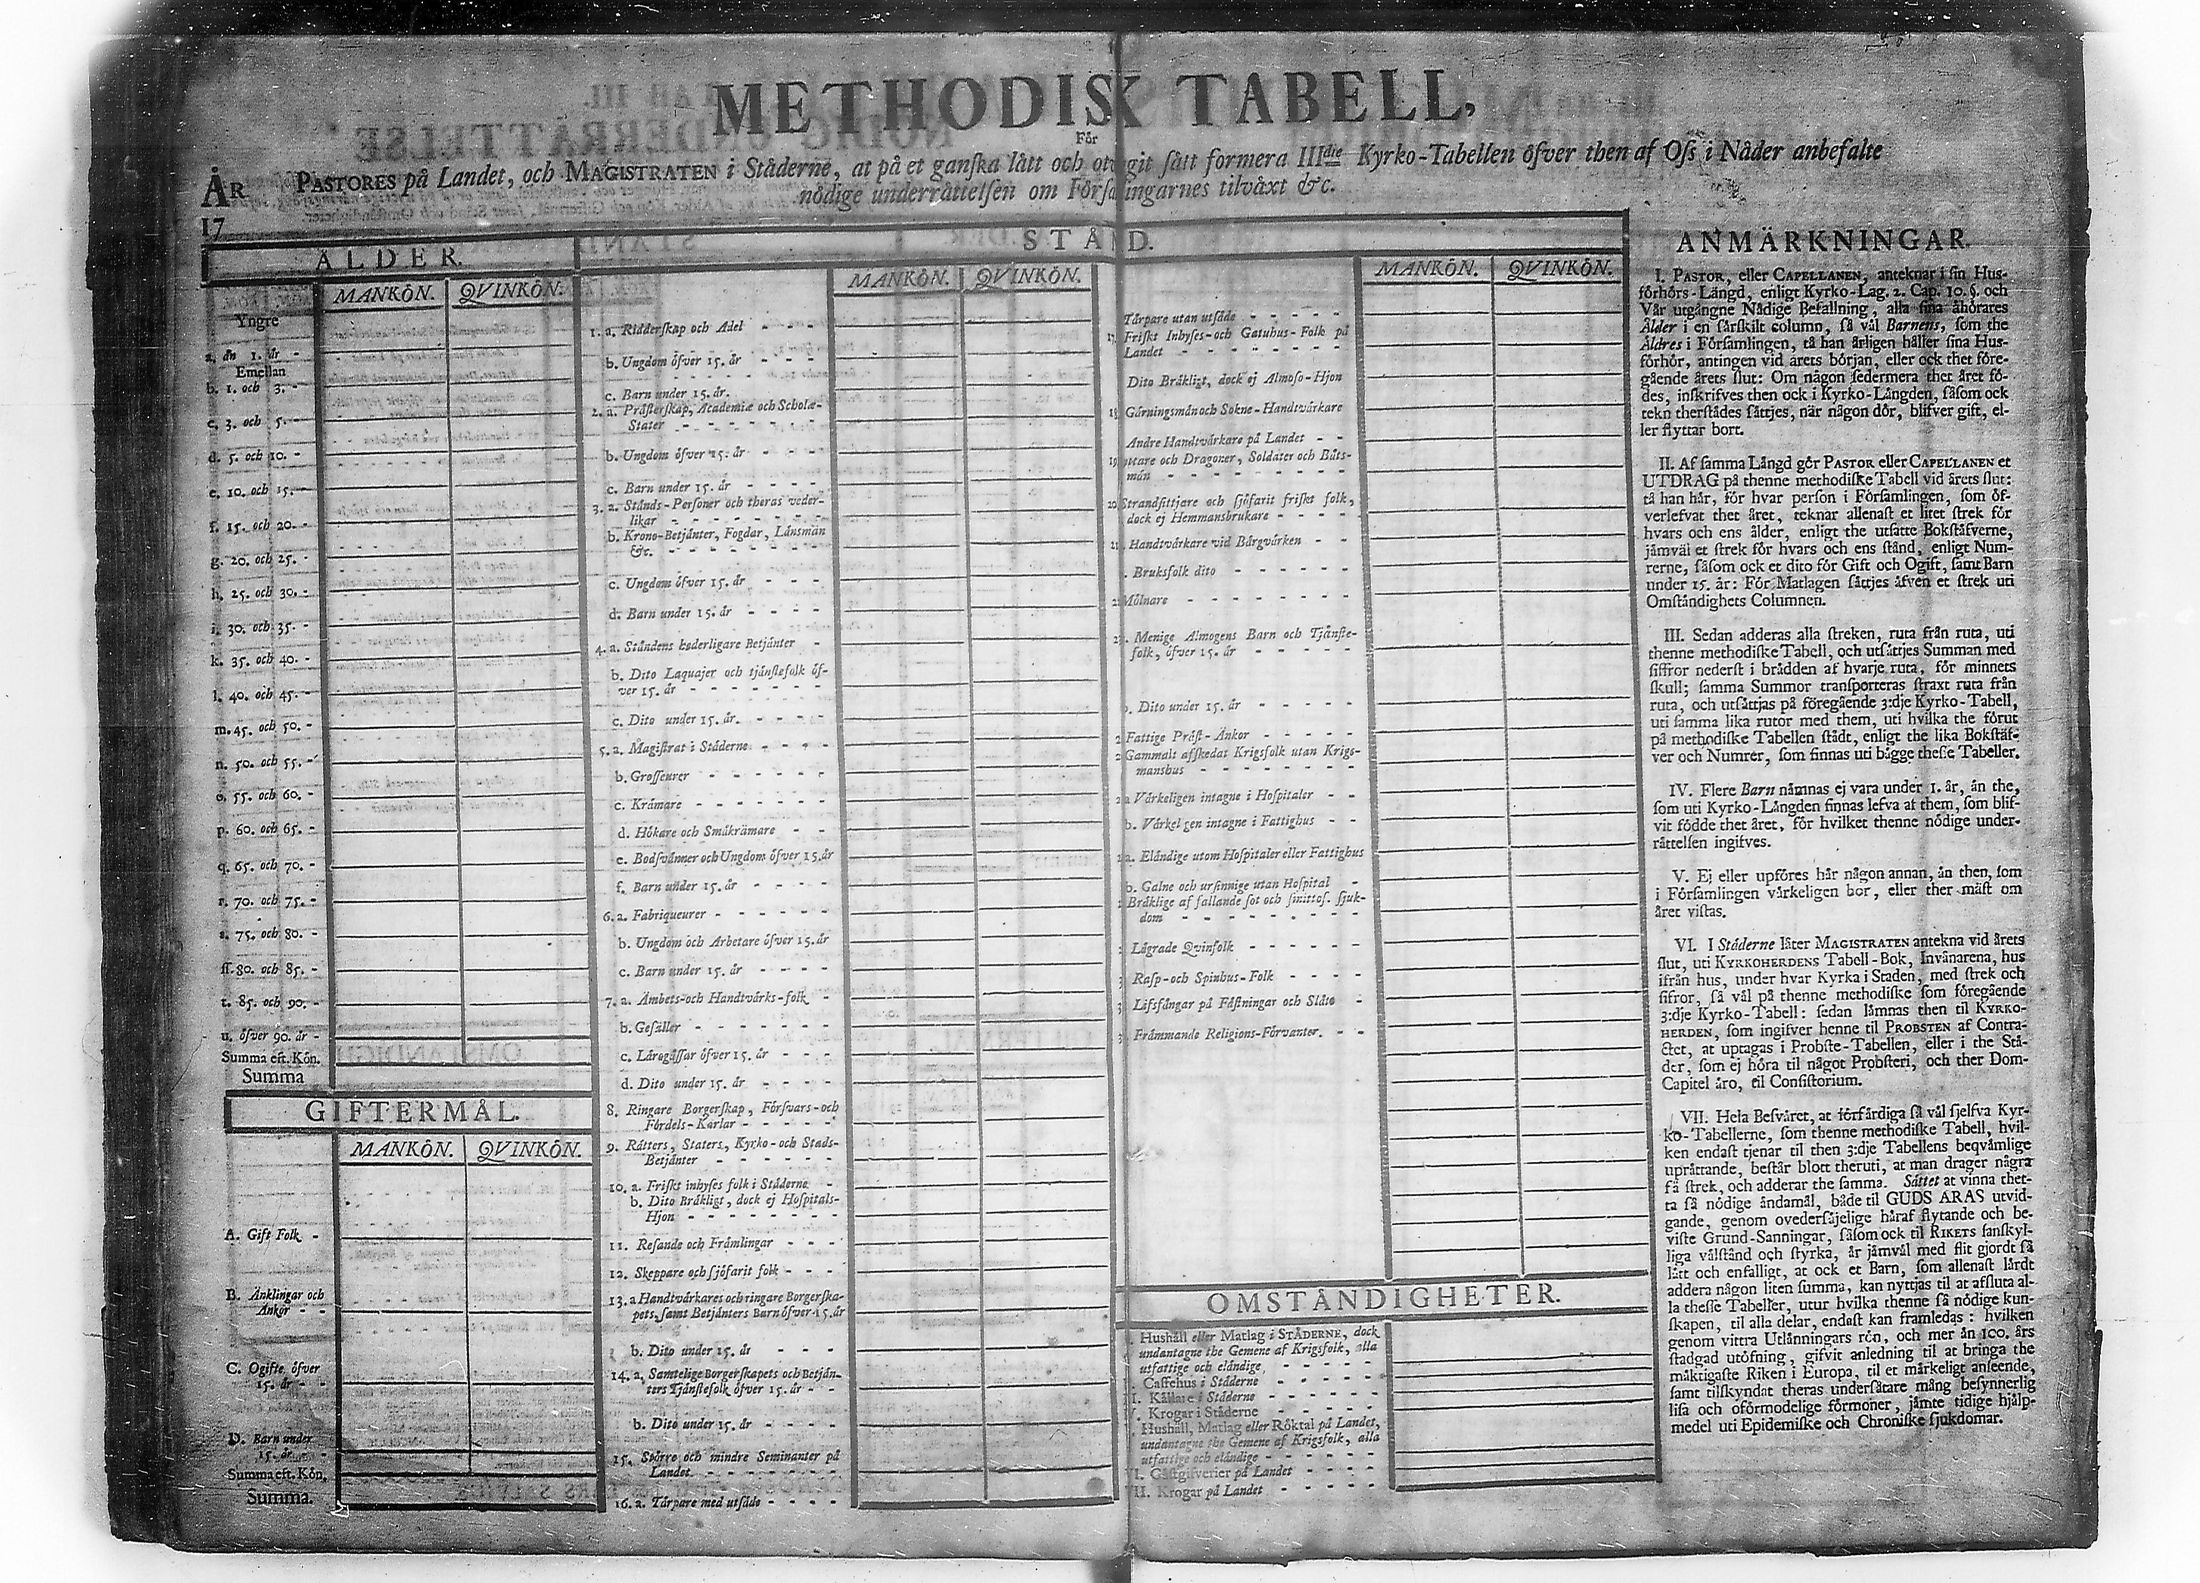 METHODISK TABELL,
För
PASTORES på Landet, och MAGISTRATEN i Ståderne, at på et ganska lått och otvgit sått formera IIIdie Kyrko-Tabellen öfver then af Oss i Nåder anbefalte
nödige underråttelsen om Församlingarnes tilvåxt &c.
ÅR
17
ÅLDER.
MANKÖN. QVINKÖN.
Yngre
a. än 1. år -
Emellan
b. 1. och 3. -
c. 3. och 5. -
d. 5. och 10. -
e. 10. och 15. -
f. 15. och 20. -
g. 20. och 25. -
h. 25. och 30. -
i. 30. och 35. -
k. 35. och 40. -
l. 40. och 45. -
m. 45. och 50. -
n. 50. och 55. -
o. 55. och 60. -
p. 60. och 65. -
q. 65. och 70. -
r. 70. och 75. -
s. 75. och 80. -
ſſ. 80. och 85. -
t. 85. och 90. -
u. öfver 90. år -
Summa eft. Kön.
Summa
GIFTERMÅL.
MANKÖN. QVINKÖN.
A. Gift Folk -
B. Änklingar och
Änkor - -
C. Ogifte, öfver
15. år - -
D. Barn under
15. år - -
Summa eft. Kön.
Summa.
STÅND.
MANKÖN. QVINKÖN.
1. a. Ridderskap och Adel - - -
b. Ungdom öfver 15. år - - -
c. Barn under 15. år.
2. a. Pråsterskap, Academiæ och Scholæ-
Stater - - - - - -
b. Ungdom öfver 15. år - - -
c. Barn under 15. år - - - -
3. a. Stånds-Personer och theras veder-
likar - - - - - -
b. Krono-Betjånter, Fogdar, Lånsmån
&c. - - - - - -
c. Ungdom öfver 15. år - - -
d. Barn under 15. år - - - -
4. a. Ståndens hederligare Betjånter -
b. Dito Laquajer och tjånstefolk öf-
ver 15. år - - - - - -
c. Dito under 15. år. - - - -
5. a. Magistrat i Ståderne - - -
b. Grosseurer - - - - - -
c. Kråmare - - - - - -
d. Hökare och Småkråmare - -
e. Bodsvånner och Ungdom öfver 15. år
f. Barn under 15. år - - - -
6. a. Fabriqueurer - - - - -
b. Ungdom och Arbetare öfver 15. år
c. Barn under 15. år - - - -
7. a. Åmbets-och Handtvårks-folk -
b. Gesåller - - - - - -
c. Lårogåssar öfver 15. år - - -
d. Dito under 15. år - - - -
8. Ringare Borgerskap, Försvars-och
Fördels-Karlar - - - - -
9. Råtters, Staters, Kyrko-och Stads-
Betjånter - - - - - -
10. a. Friskt inhyses folk i Ståderne -
b. Dito Bråkligt, dock ej Hospitals-
Hjon - - - - - -
11. Resande och Fråmlingar - - -
12. Skeppare och sjöfarit folk - - -
13. a. Handtvårkares och ringare Borgerska-
pets, samt Betjånters Barn öfver 15. år
b. Dito under 15. år - - - -
14. a. Samtelige Borgerskapets och Betjån-
ters Tjånstefolk öfver 15. år - -
b. Dito under 15. år - - - -
15. Större och mindre Seminanter på
Landet - - - - - -
16. a. Tårpare med utsåde - - - -
MANKÖN. QVINKÖN.
Tårpare utan utsåde - - - - -
Friskt Inhyses-och Gatuhus-Folk på
Landet - - - - - -
Dito Bråkligt, dock ej Almoso-Hjon
Gårningsmån och Sokne-Handtvårkare
Andre Handtvårkare på Landet - -
ttare och Dragoner, Soldater och Båts-
mån - - - - - -
20 Strandsittjare och sjöfarit friskt folk,
dock ej Hemmansbrukare - - - -
Handtvårkare vid Bårgvårken - -
Bruksfolk dito - - - - - -
Mölnare - - - - - -
Menige Almogens Barn och Tjånste-
folk, öfver 15. år - - - - -
Dito under 15. år - - - -
Fattige Pråst-Änkor - - - - -
Gammalt afskedat Krigsfolk utan Krigs-
manshus - - - - - -
a Vårkeligen intagne i Hospitaler - -
b. Vårkeligen intagne i Fattighus - -
a. Elåndige utom Hospitaler eller Fattighus
b. Galne och ursinnige utan Hospital -
Bråklige af fallande sot och smittos. sjuk-
dom - - - - - -
Lågrade Qvinfolk - - - - -
Rasp-och Spinhus-Folk - - - -
Lifsfångar på Fåstningar och Slåto -
Fråmmande Religions-Förvanter. - -
OMSTÅNDIGHETER.
Hushåll eller Matlag i STÅDERNE, dock
undantagne the Gemene af Krigsfolk, alla
utfattige och elåndige - - - - -
Caffehus i Ståderne - - - - -
Kållare i Ståderne - - - - -
Krogar i Ståderne - - - - -
Hushåll, Matlag eller Röktal på Landet,
undantagne the Gemene af Krigsfolk, alla
utfattige och elåndige - - - - -
VI. Gåstgifverier på Landet - - - -
VII. Krogar på Landet - - - - -
ANMÄRKNINGAR.
I. PASTOR, eller CAPELLANEN, anteknar i sin Hus-
förhörs-Långd, enligt Kyrko-Lag. 2. Cap. 10. §. och
Vår utgångne Nådige Befallning, alla sina åhörares
Ålder i en sårskilt column, så vål Barnens, som the
Åldres i Församlingen, tå han årligen håller sina Hus-
förhör, antingen vid årets början, eller ock thet före-
gående årets slut: Om någon sedermera thet året fö-
des, inskrifves then ock i Kyrko-Långden, såsom ock
tekn therstådes såttjes, når någon dör, blifver gift, el-
ler flyttar bort.
II. Af samma Långd gör PASTOR eller CAPELLANEN et
UTDRAG på thenne methodiske Tabell vid årets slut:
tå han hår, för hvar person i Församlingen, som öf-
verlefvat thet året, teknar allenast et litet strek för
hvars och ens ålder, enligt the utsatte Bokståfverne,
jåmvål et strek för hvars och ens stånd, enligt Num-
rerne, såsom ock et dito för Gift och Ogift, samt Barn
under 15. år: För Matlagen såttjes åfven et strek uti
Omståndighets Columnen.
III. Sedan adderas alla streken, ruta från ruta, uti
thenne methodiske Tabell, och utsåttjes Summan med
siffror nederst i brådden af hvarje ruta, för minnets
skull; samma Summor transporteras straxt ruta från
ruta, och utsåttjas på föregående 3:dje Kyrko-Tabell,
uti samma lika rutor med them, uti hvilka the förut
på methodiske Tabellen stådt, enligt the lika Bokståf-
ver och Numrer, som finnas uti bågge thesse Tabeller.
IV. Flere Barn nåmnas ej vara under 1. år, ån the,
som uti Kyrko-Långden finnas lefva af them, som blif-
vit födde thet året, för hvilket thenne nödige under-
råttelsen ingifves.
V. Ej eller upföres hår någon annan, ån then, som
i Församlingen vårkeligen bor, eller ther måst om
året vistas.
VI. I Ståderne låter MAGISTRATEN antekna vid årets
slut, uti KYRKOHERDENS Tabell-Bok, Invånarena, hus
ifrån hus, under hvar Kyrka i Staden, med strek och
sifror, så vål på thenne methodiske som föregående
3:dje Kyrko-Tabell: sedan låmnas then til KYRKO-
HERDEN, som ingifver henne til PROBSTEN af Contra-
ctet, at uptagas i Probste-Tabellen, eller i the Stå-
der, som ej höra til något Probsteri, och ther Dom-
Capitel åro, til Consistorium.
VII. Hela Besvåret, at förfårdiga så vål sjelfva Kyr-
ko-Tabellerne, som thenne methodiske Tabell, hvil-
ken endast tjenar til then 3:dje Tabellens beqvåmlige
upråttande, består blott theruti, at man drager några
få strek, och adderar the samma. Såttet at vinna thet-
ta så nödige åndamål, både til GUDS ÄRAS utvid-
gande, genom ovedersåjelige håraf flytande och be-
viste Grund-Sanningar, såsom ock til RIKETS sanskyl-
liga vålstånd och styrka, år jåmvål med flit gjordt så
lått och enfalligt, at ock et Barn, som allenast lårdt
addera någon liten summa, kan nyttjas til at afsluta al-
la thesse Tabeller, utur hvilka thenne så nödige kun-
skapen, til alla delar, endast kan framledas: hvilken
genom vittra Utlånningars rön, och mer ån 100. års
stadgad utöfning, gifvit anledning til at bringa the
måktigaste Riken i Europa, til et mårkeligt anseende,
samt tilskyndat theras undersåtare mång besynnerlig
lisa och oförmodelige förmoner, jåmte tidige hjålp-
medel uti Epidemiske och Chroniske sjukdomar.